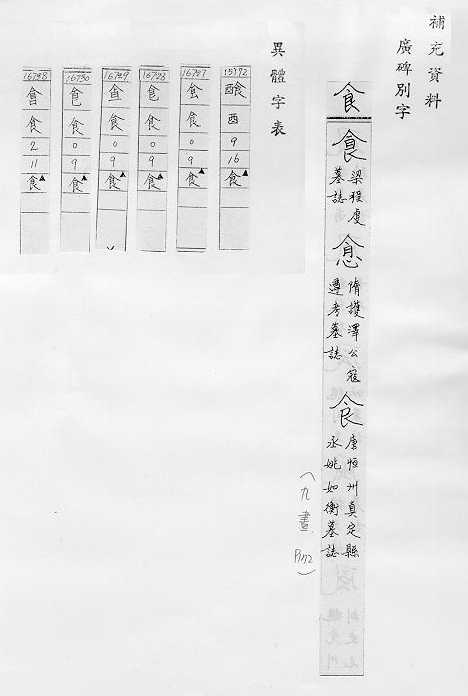 補充資料
廣碑別字
食
食 梁程虔墓誌
隋護澤公寇遵考墓誌
食 唐恒州真定縣丞姚如衡墓誌
(九畫 P.172)
異體字表
15192 酓 酉 9 16 食▲
16727 食 0 9 食▲
16728 食 0 9 食▲
16729 食 0 9 食▲
16730 食 0 9 食▲
16738 食 2 11 食▲